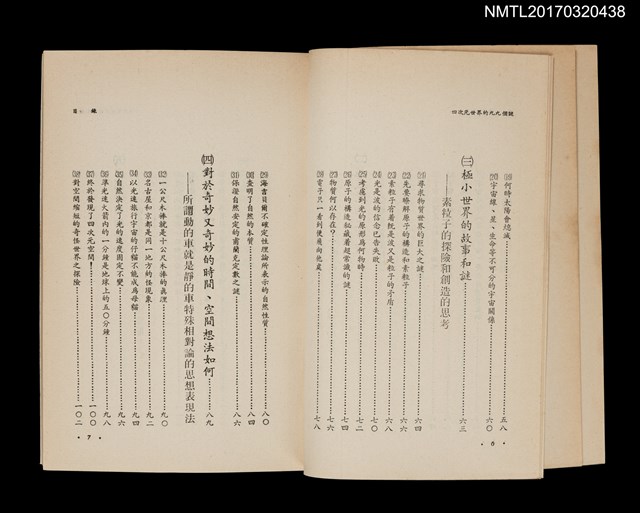 NMTL20170320438
四次元世界的九九個謎
何時太陽會熄滅……五八
宇宙線、星、生命密不可分的宇宙關係……六〇
㈢極小世界的故事和謎……六三
——素粒子的探險和創造的思考
尋求物質世界的巨大之謎……六四
先要瞭解原子的構造和素粒子……六六
素粒子有著既是波又是粒子的矛盾……六八
光是波的信念已告失敗……七〇
考慮到光的原形爲何物時……七二
原子的構造秘藏着超常識的謎……七四
物質何以存在？……七六
電子只一看到便飛向他處……七八
• 6 •
目　錄
海書貝爾不確定性理論所表示的自然性質……八〇
查明了自然的本質……八四
保證自然安定的霜蘭克定數之謎……八六
㈣對於奇妙又奇妙的時間、空間想法如何……八九
——所謂動的車就是靜的車特殊相對論的思想表現法
一公尺木棒就是十公尺木棒的眞理……九〇
名古屋和京都是同一地方的怪現象……九二
以光速旅行宇宙的仔貓不能成爲母貓……九四
自然決定了光的速度固定不變……九六
準光速火箭內的一分鐘是地球上的五〇分鐘……九八
終於發現了四次元空間！……一〇〇
對空間縮短的奇怪世界之探險……一〇二
• 7 •